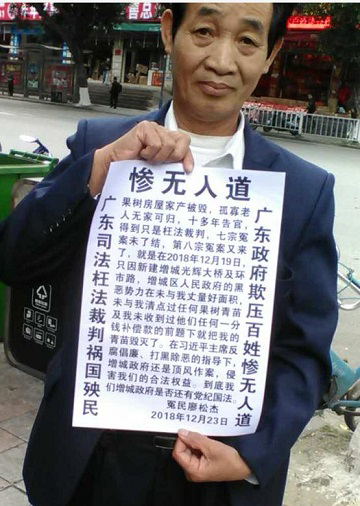 惨无人道
广东政府欺压百姓惨无人道
果树房屋家产被毁，孤寡老
人无家可归，十多年告官，
得到只是枉法裁判，七宗冤
案未了结，第八宗冤案又来
了，就是在2018年12月19日，
只因新建增城光辉大桥及环
市路，增城区人民政府的黑
恶势力在未与我丈量好面积，
未与我清点过任何果树青苗
及我未收到过他们任何一分
钱补偿款的前题下就把我的
青苗毁灭了。在习近平主席反
腐倡廉、打黑除恶的指导下，
增城政府还是顶风作案，侵
害我们的合法权益。到底我
们增城政府是否还有党纪国法。
冤民廖松杰
2018年12月23日
广东司法枉法裁判祸国殃民